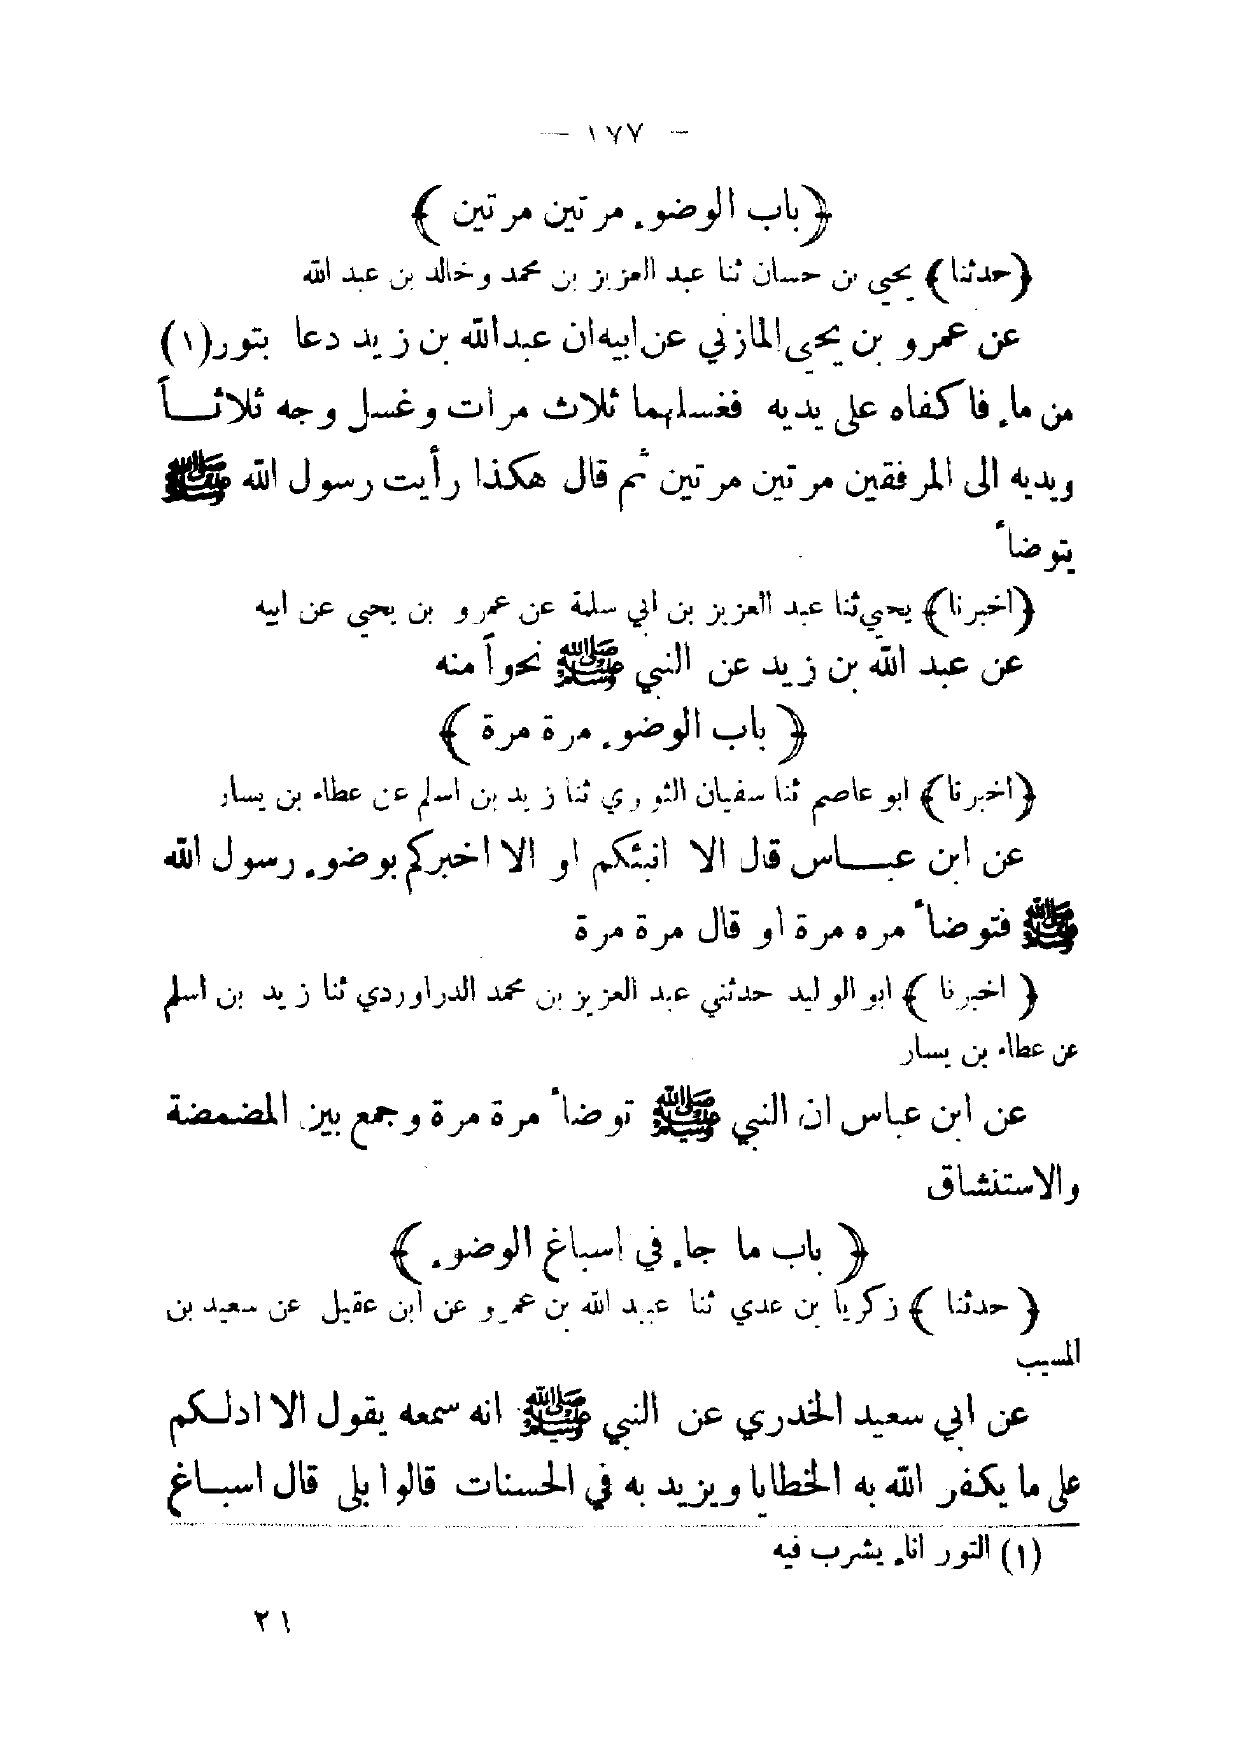 — ١٧٧ —
﴿باب الوضوء مرتين مرتين ﴾
﴿حدثنا ﴾ يحيى بن حسان ثنا عبد العزيز بن محمد وخالد بن عبد الله
عن عمرو بن يحيى المازني عن ابيه ان عبدالله بن زيد دعا بتور(١)
من ماء فاكفاه على يديه فغسلهما ثلاث مرات وغسل وجهه ثلاثـاً
ويديه الى المرفقين مرتين مرتين ثم قال هكذا رأيت رسول الله ﷺ
يتوضأ
﴿اخبرنا﴾ يحيى ثنا عبد العزيز بن ابي سلمة عن عمرو بن يحيى عن ابيه
عن عبد الله بن زيد عن النبي ﷺ نحواً منه
﴿ باب الوضوء مرة مرة ﴾
﴿اخبرنا﴾ ابو عاصم ثنا سفيان الثوري ثنا زيد بن اسلم عن عطاء بن يسار
عن ابن عبـاس قال الا انبئكم او الا اخبركم بوضوء رسول الله
ﷺ فتوضأ مره مرة او قال مرة مرة
﴿ اخبرنا ﴾ ابو الوليد حدثني عبد العزيز بن محمد الدراوردي ثنا زيد بن اسلم
عن عطاء بن يسار
عن ابن عباس ان النبي ﷺ توضأ مرة مرة وجمع بين المضمضة
والاستنشاق
﴿ باب ما جاء في اسباغ الوضوء ﴾
﴿ حدثنا ﴾ زكريا بن عدي ثنا عبيد الله بن عمرو عن ابن عقيل عن سعيد بن
المسيب
عن ابي سعيد الخدري عن النبي ﷺ انه سمعه يقول الا ادلكم
على ما يكفر الله به الخطايا ويزيد به في الحسنات قالوا بلى قال اسباغ
(١) التور اناء يشرب فيه
٢١